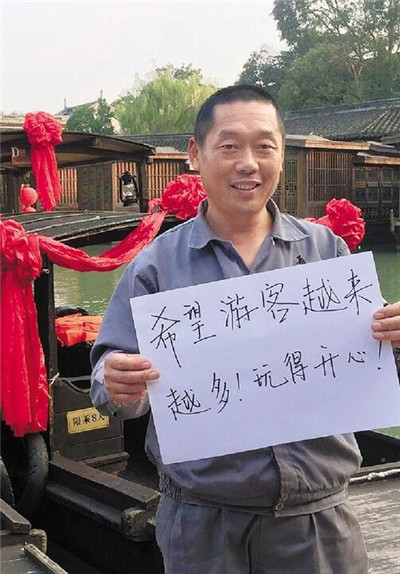 希望游客越来
越多！玩得开心！
限乘8人